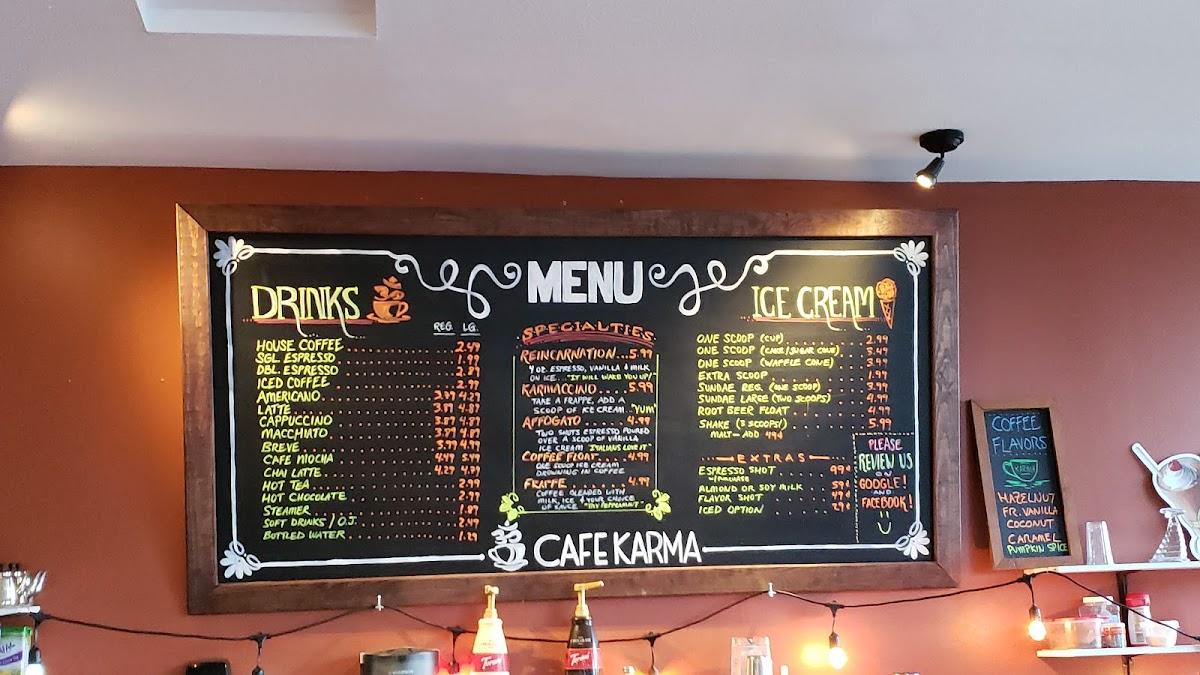 MENU
DRINKS
REG. LG.
HOUSE COFFEE 2.49
SGL ESPRESSO 1.99
DBL ESPRESSO 2.89
ICED COFFEE 2.99
AMERICANO 4.29
LATTE 3.87 4.87
CAPPUCCINO 3.87 4.87
MACCHIATO 4.87
BREVE 4.99
CAFE MOCHA 4.49 5.49
CHAI LATTE 4.29 4.79
HOT TEA 2.99
HOT CHOCOLATE 2.99
STEAMER 1.87
SOFT DRINKS / O.J. 2.49
BOTTLED WATER 1.29
SPECIALTIES
REINCARNATION...5.99
4 OZ. ESPRESSO, VANILLA & MILK
ON ICE... "IT WILL WAKE YOU UP!"
KARMACCINO....5.99
TAKE A FRAPPE, ADD A
SCOOP OF ICE CREAM.."YUM"
AFFOGATO....4.99
TWO SHOTS ESPRESSO POURED
OVER A SCOOP OF VANILLA
ICE CREAM "ITALIANS LOVE IT"
COFFEE FLOAT..4.99
ONE SCOOP ICE CREAM
DROWNING IN COFFEE
FRAPPE....4.99
COFFEE BLENDED WITH
MILK, ICE & YOUR CHOICE
OF SAUCE "TRY PEPPERMINT"
ICE CREAM
ONE SCOOP (CUP) 2.99
ONE SCOOP (CAKE/SUGAR CONE) 3.49
ONE SCOOP (WAFFLE CONE) 3.99
EXTRA SCOOP 1.99
SUNDAE REG. (ONE SCOOP) 3.99
SUNDAE LARGE (TWO SCOOPS) 4.99
ROOT BEER FLOAT 4.99
SHAKE (3 SCOOPS!) 5.99
MALT- ADD 49¢
EXTRAS
ESPRESSO SHOT 99¢
W/PURCHASE
ALMOND OR SOY MILK 59¢
FLAVOR SHOT 49¢
ICED OPTION 29¢
PLEASE
REVIEW US
ON
GOOGLE!
AND
FACEBOOK!
CAFE KARMA
COFFEE
FLAVORS
KARMA
HAZELNUT
FR. VANILLA
COCONUT
CARAMEL
PUMPKIN SPICE
Torani
Torani